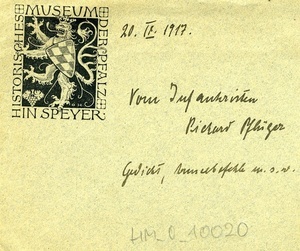 HISTORISCHES MUSEUM DER PFALZ
IN SPEYER
20. IX. 1917.
Vom Infanteristen
Richard Pflüger
Gedicht, Armeebefehle u. s. w.
HM_0_10020